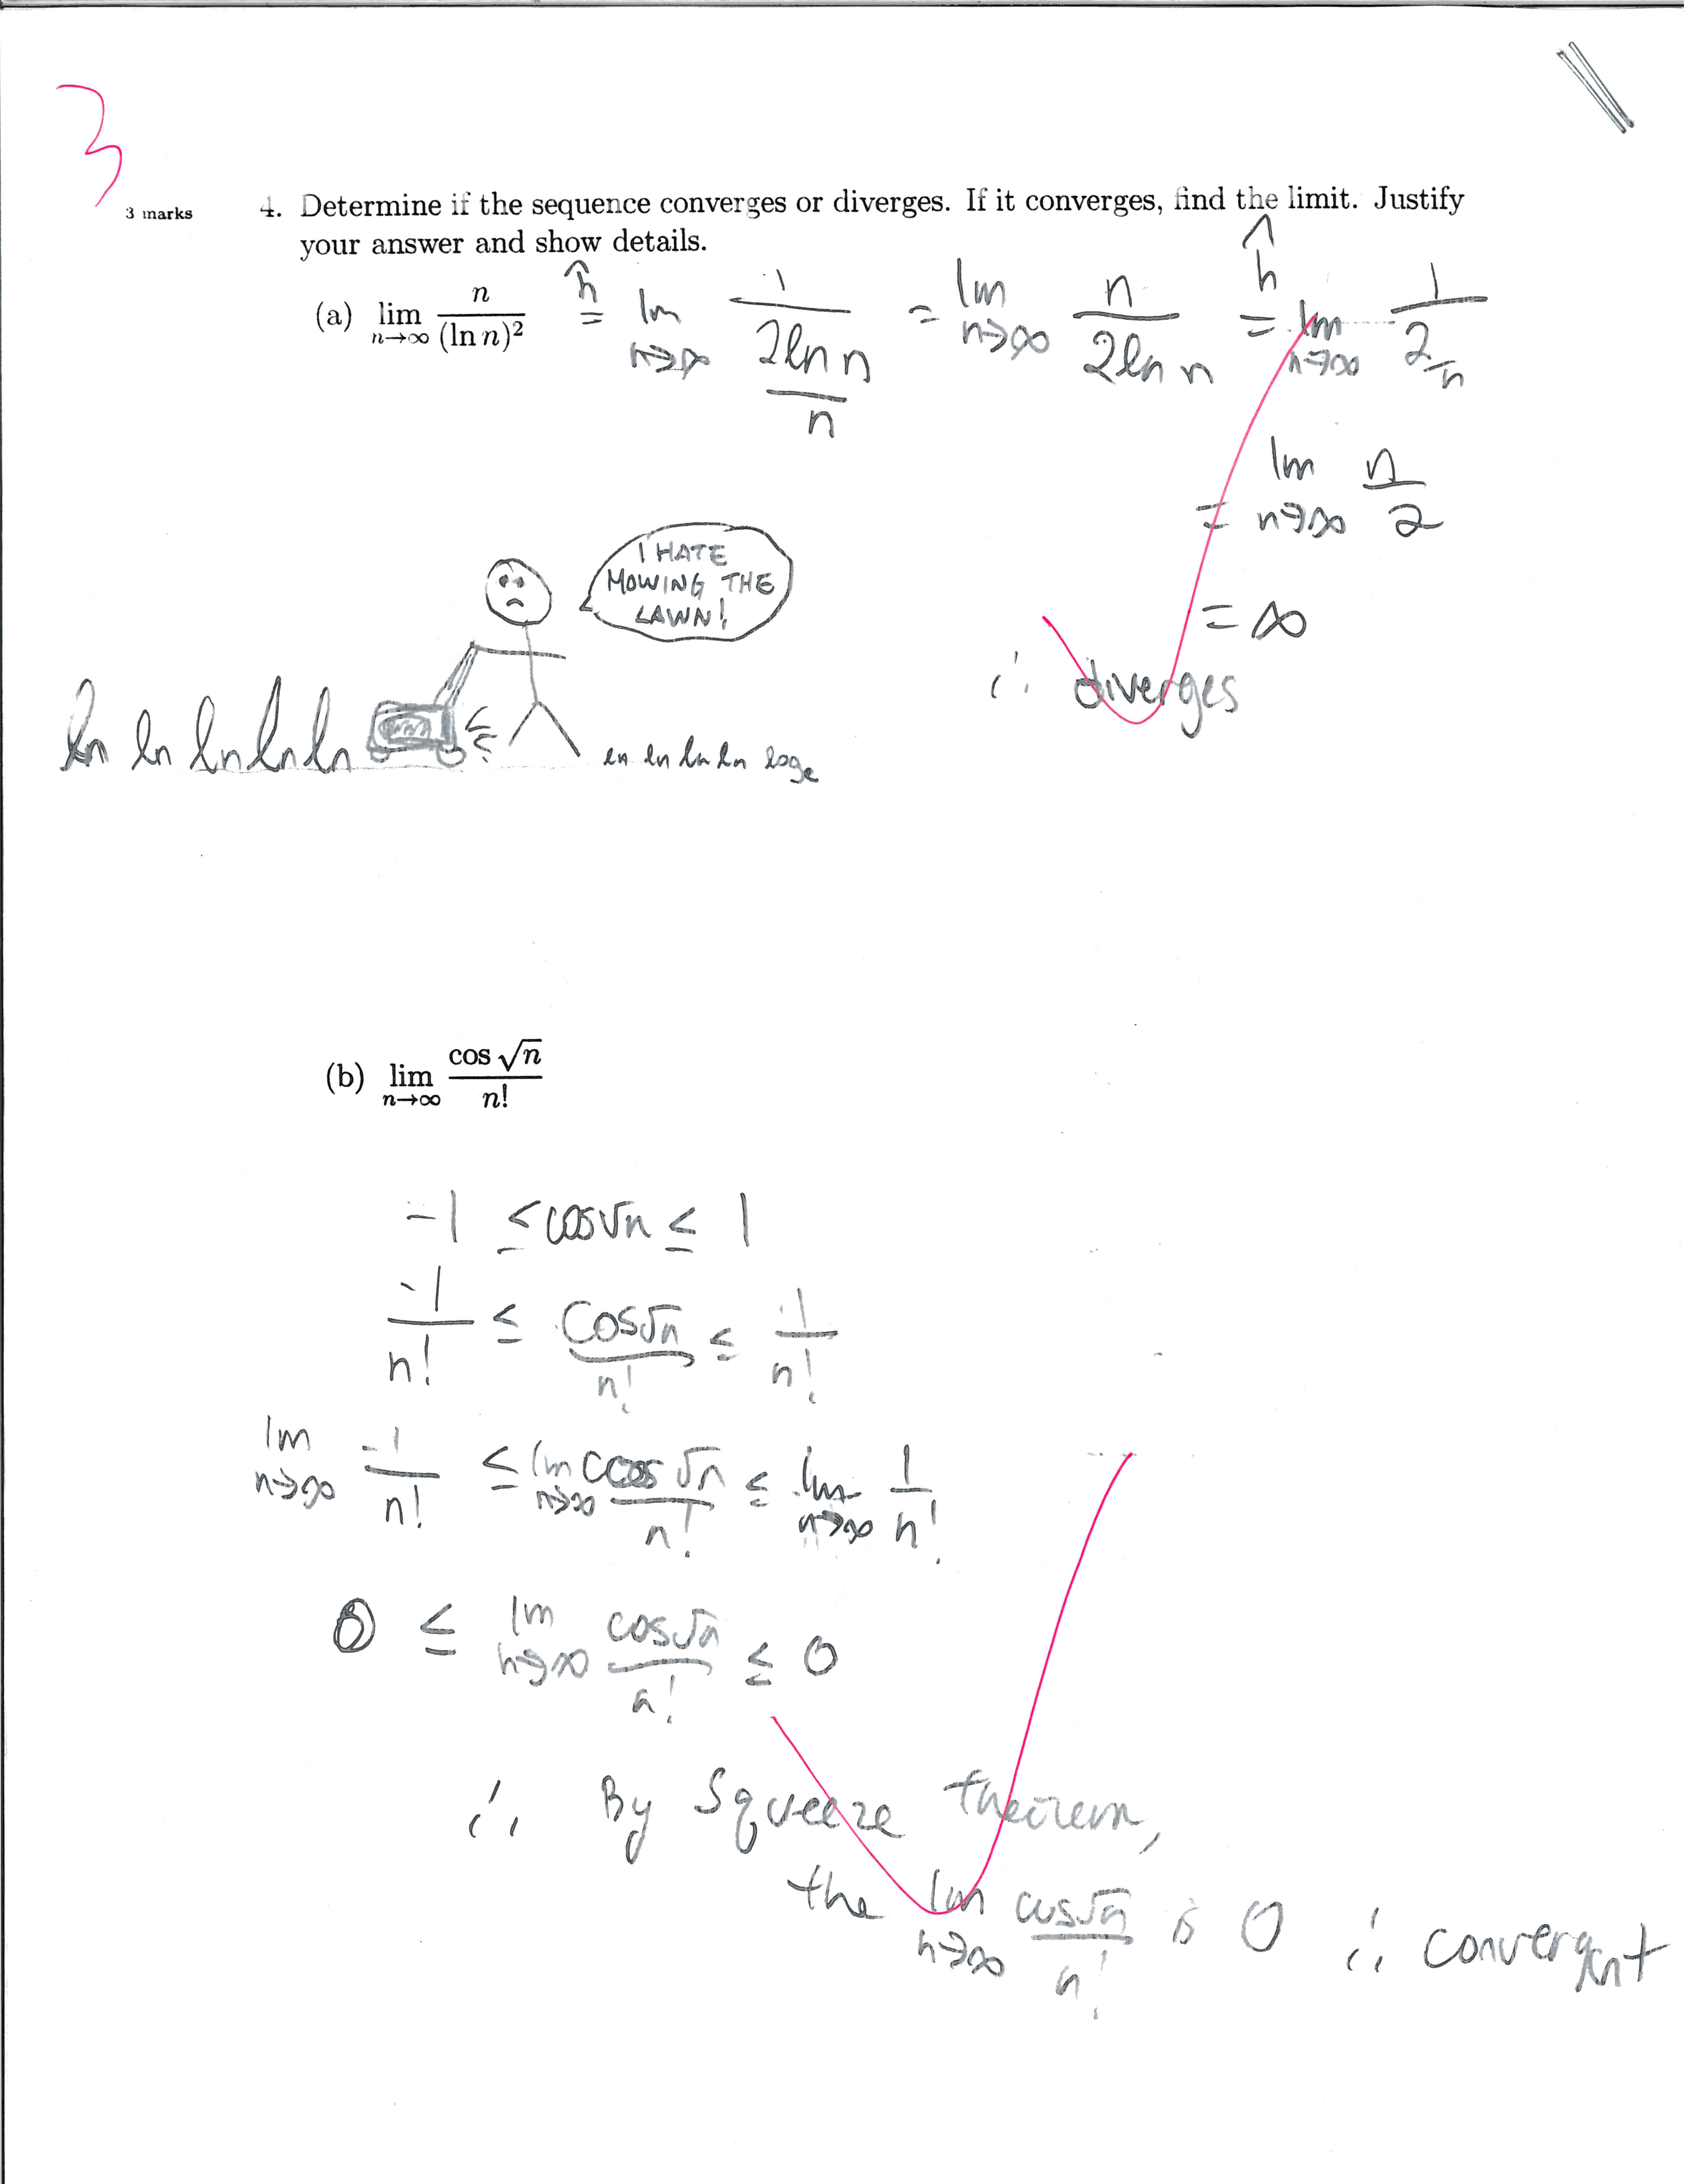 3
3 marks
4. Determine if the sequence converges or diverges. If it converges, find the limit. Justify
your answer and show details.
(a) lim n→∞ n/(ln n)² ĥ= lim n→∞ 1/(2ln n/n) = lim n→∞ n/(2ln n) ĥ= lim n→∞ 1/(2/n)
= lim n→∞ n/2
= ∞
∴ diverges
I HATE
MOWING THE
LAWN!
ln ln ln ln ln
ln ln ln ln logₑ
(b) lim n→∞ cos √n/n!
-1 ≤ cos√n ≤ 1
-1/n! ≤ cos√n/n! ≤ 1/n!
lim n→∞ -1/n! ≤ lim n→∞ cos √n/n! ≤ lim n→∞ 1/n!
0 ≤ lim n→∞ cos√n/n! ≤ 0
∴ By Squeeze theorem,
the lim n→∞ cos√n/n! is 0 ∴ convergent